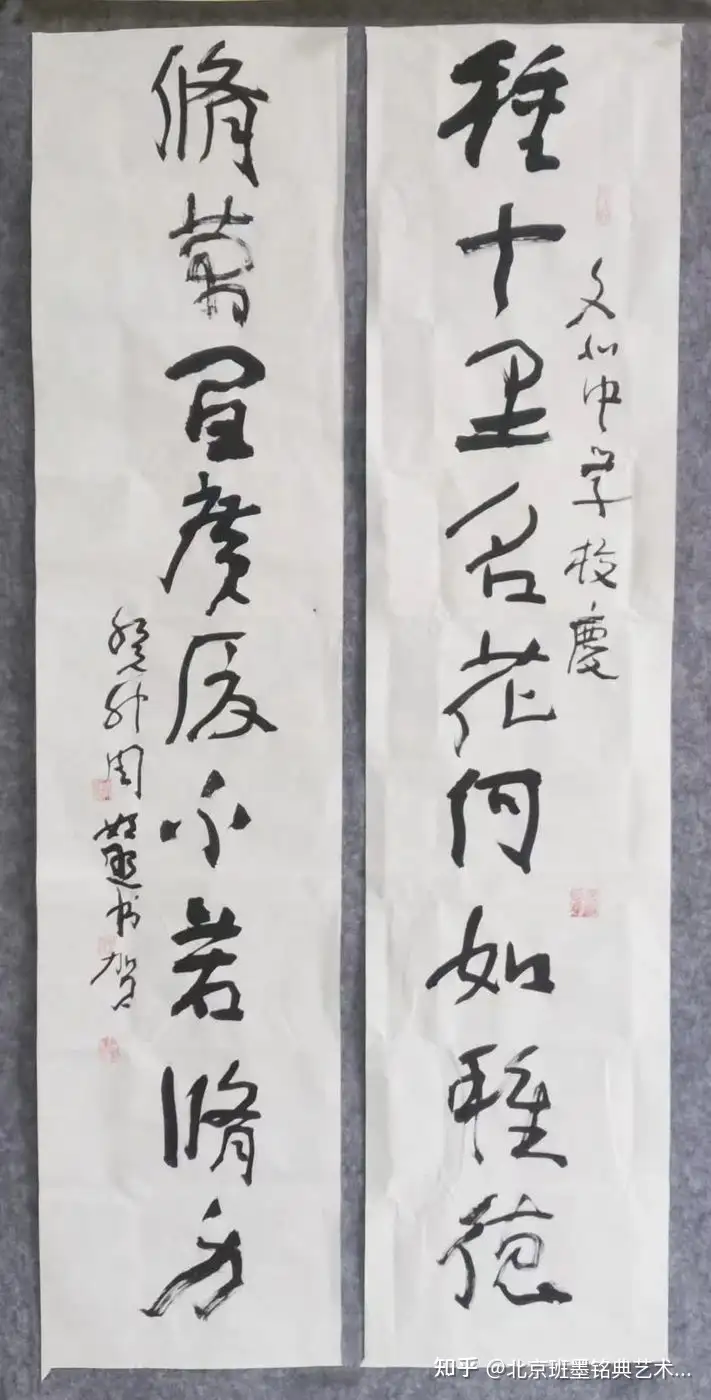 中學校慶
種十里名花何如種德
脩萬間廣廈不若脩身
癸卯周书贺
知乎 @北京班墨铭典艺术...